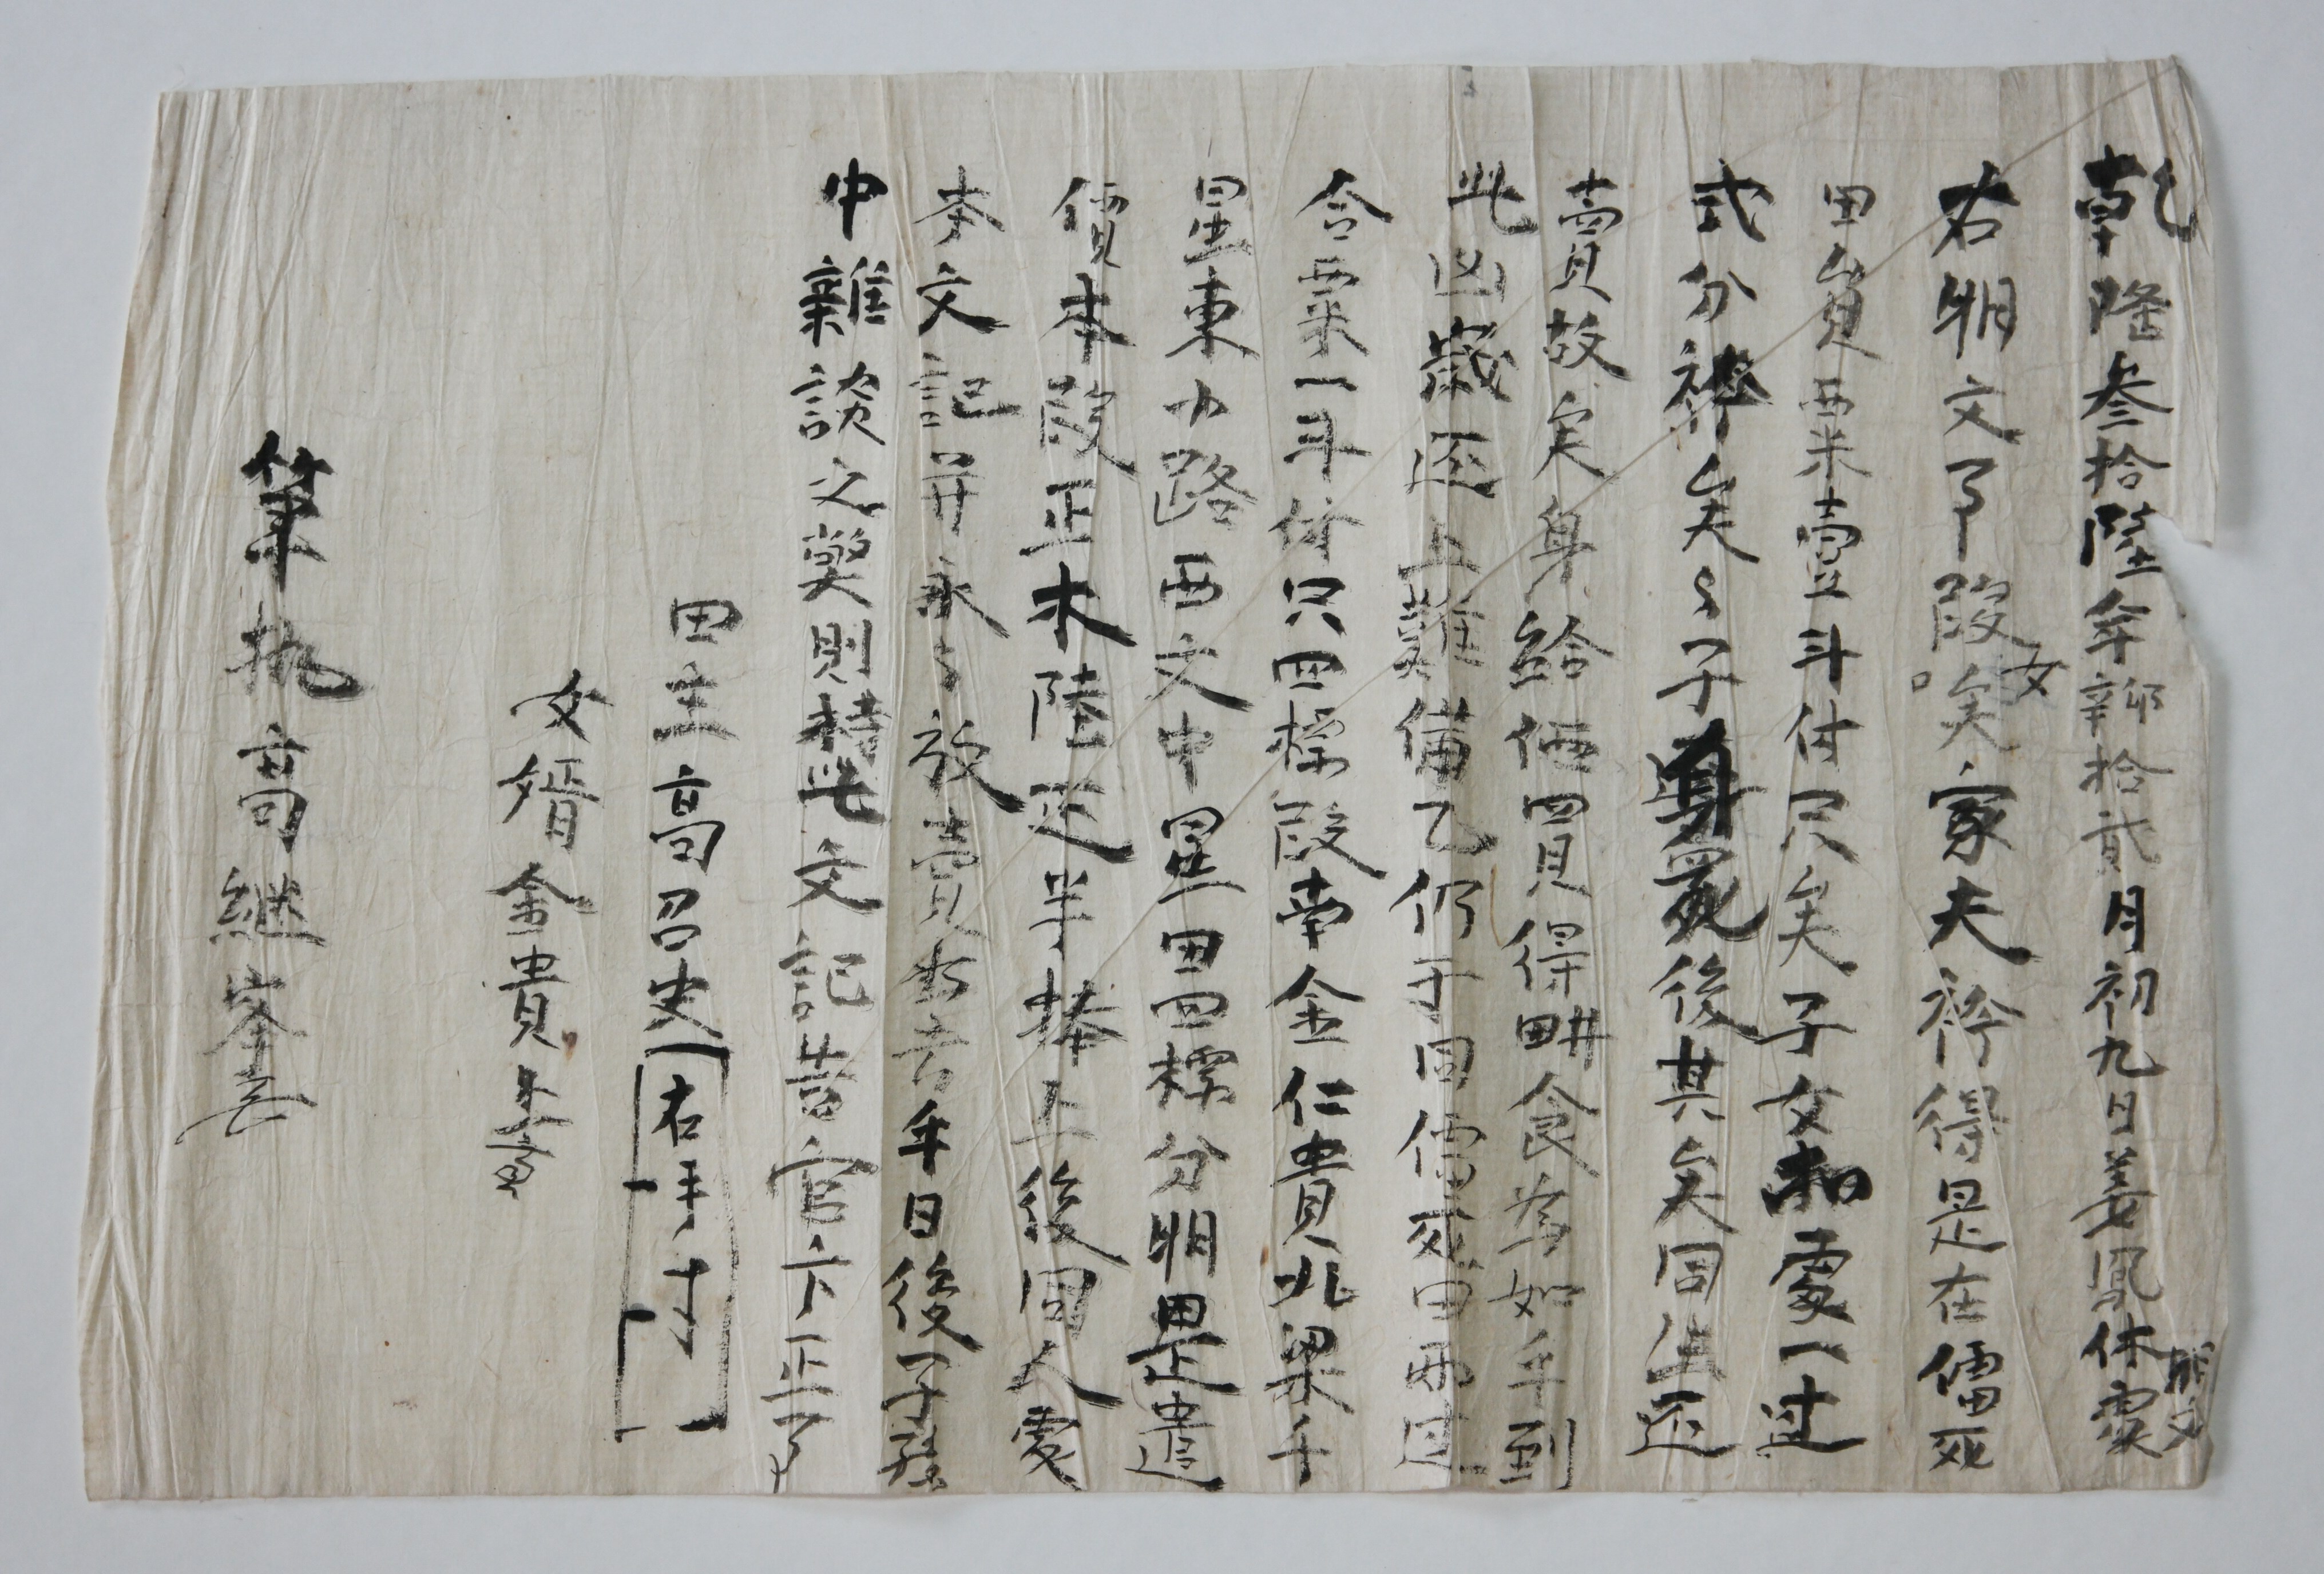 乾隆叁拾陸年辛卯拾貳月初九日姜鳳休處明文
右明文了段矣女家夫衿得是在儒死
田員粟米壹斗付只矣子女和處一边
式分衿矣夫〻子身死後其矣同生还
賣故矣身給価買得畊食為如乎到
此凶歲还上難備乙仍于同儒死田西边
合粟一斗付只四標段南金仁貴北梁千
星東小路西文中星田四標分明是遣
價本段正木陸疋半捧上後同人處
本文記并永〻放賣為去乎日後子孫
中雜談之獘則持此文記告官卞正了
田主高召史右手寸
女婿金貴生
筆執高継崒